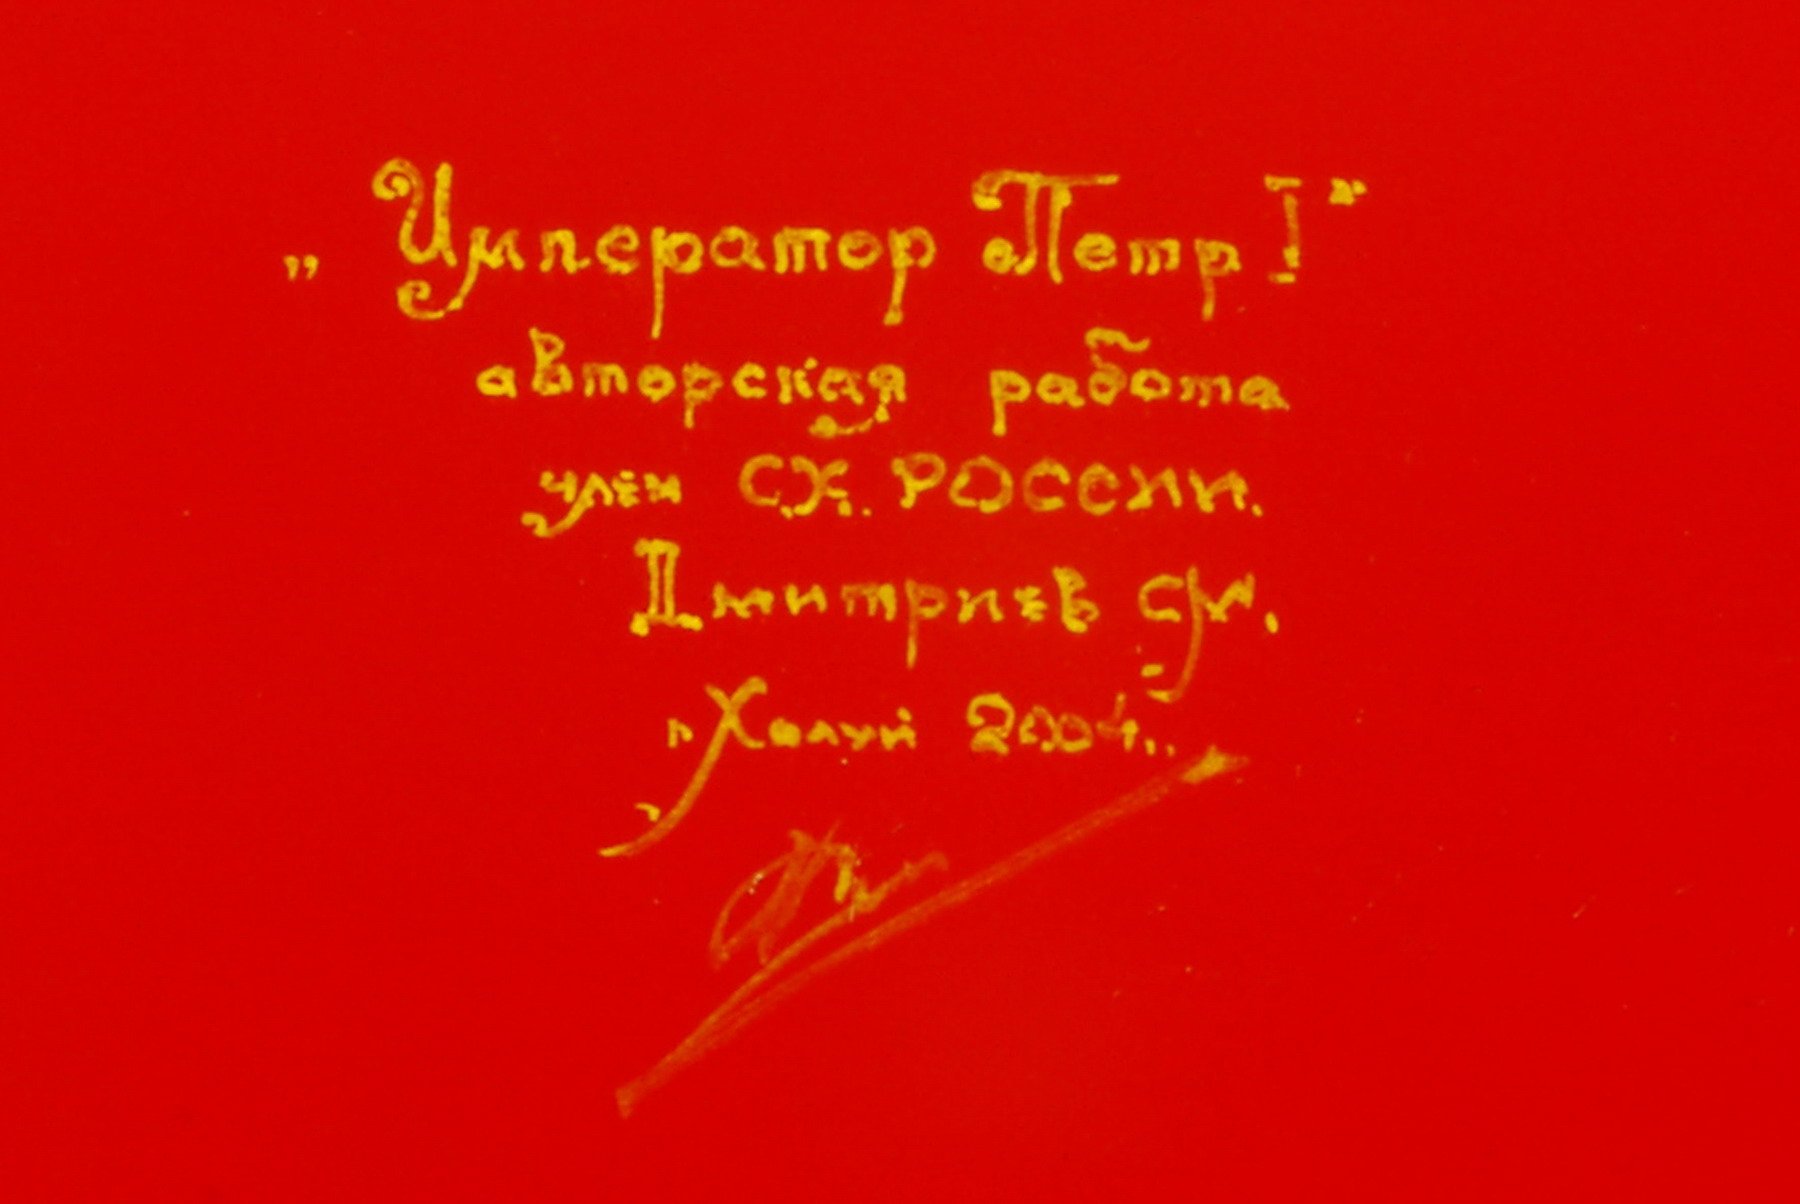 „Император Петр I"
авторская работа
член С.Х. РОССИИ.
Дмитриев СМ.
п Холуй 2004..